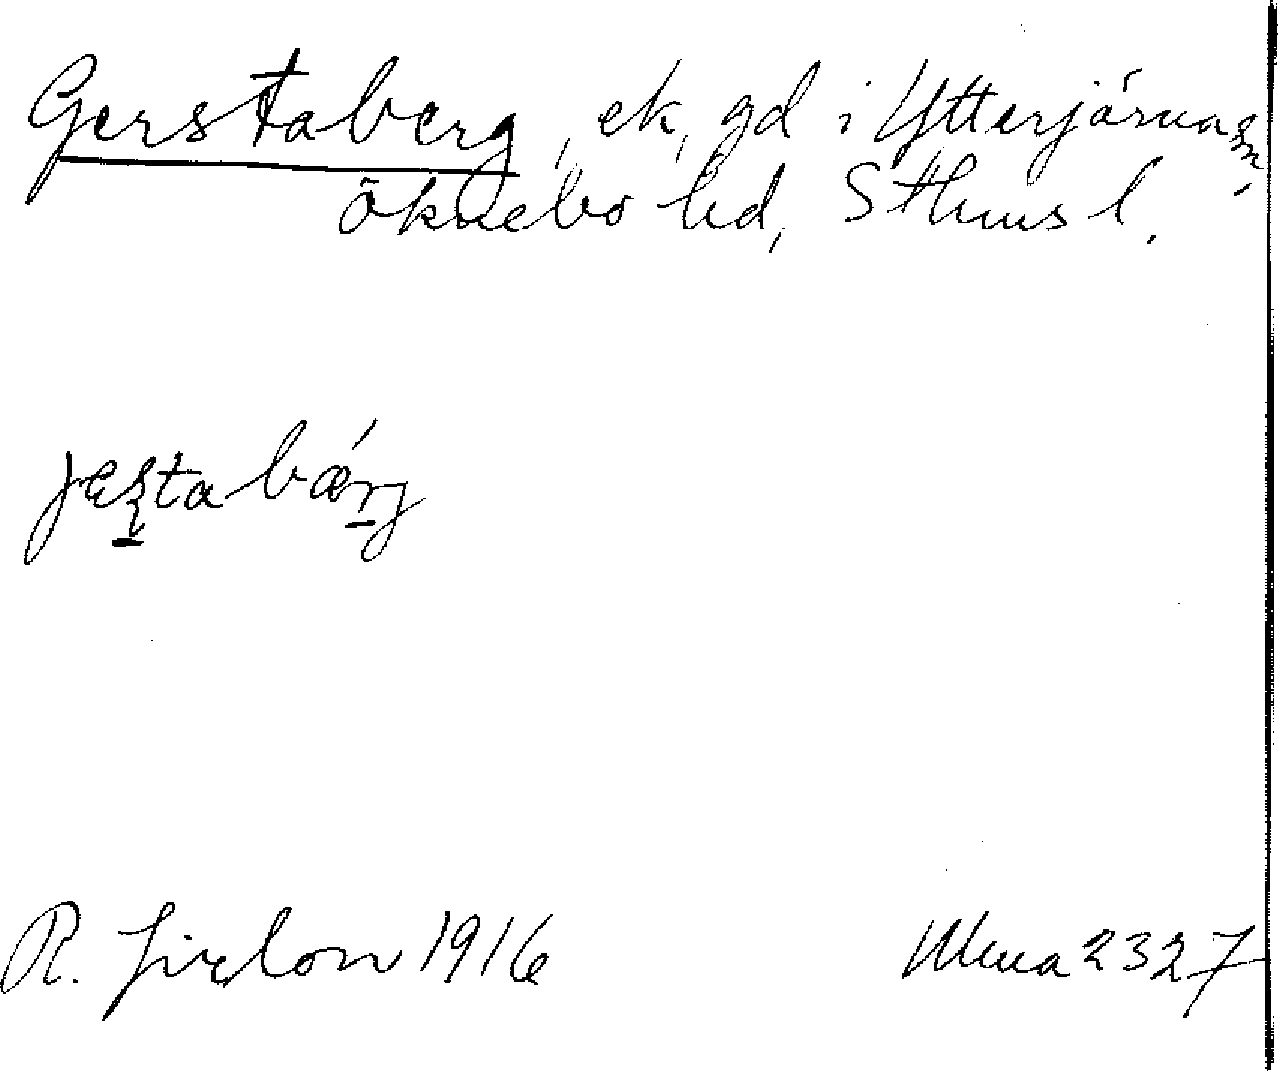 Gerstaberg, ek, gd i Ytterjärna sn,
Öknebo hd, Sthms l.
jeʂtabǽrj
R. Jirlow 1916
Muua 2327